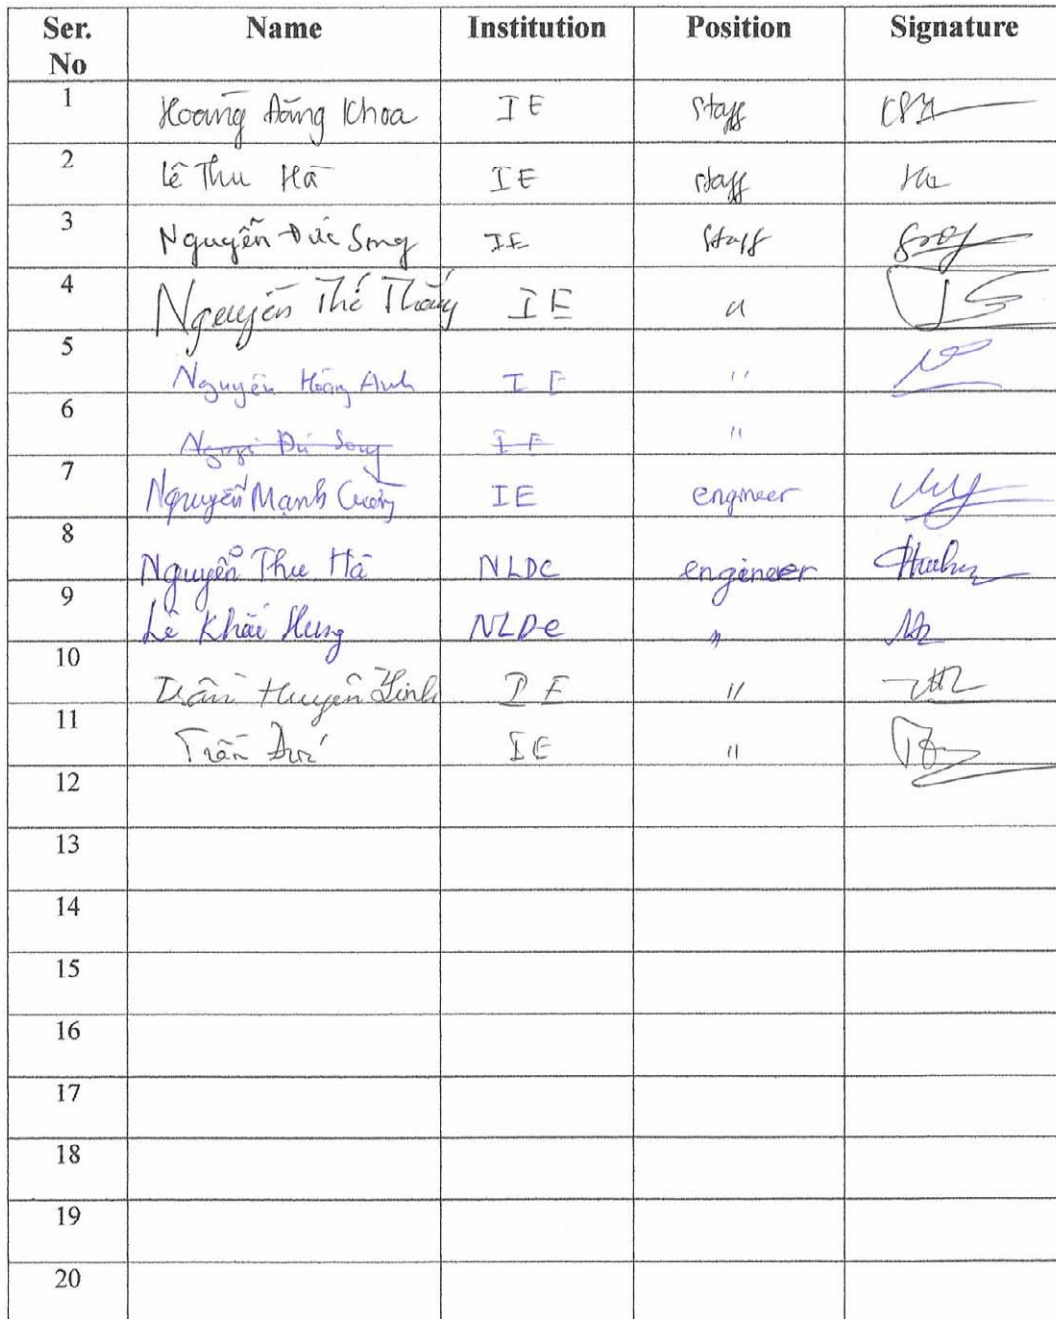 Ser. No Name Institution Position Signature
1 Hoàng Đăng Khoa IE staff
2 Lê Thu Hà IE staff Ha
3 Nguyễn Đức Song IE Staff Song
4 Nguyễn Thế Thắng IE "
5 Nguyễn Hoàng Anh IE "
6 Nguyễn Đức Song IE "
7 Nguyễn Mạnh Cường IE engineer
8 Nguyễn Thu Hà NLDC engineer
9 Lê Khắc Hưng NLDC "
10 Trần Huyền Linh IE "
11 Trần IE "
12
13
14
15
16
17
18
19
20